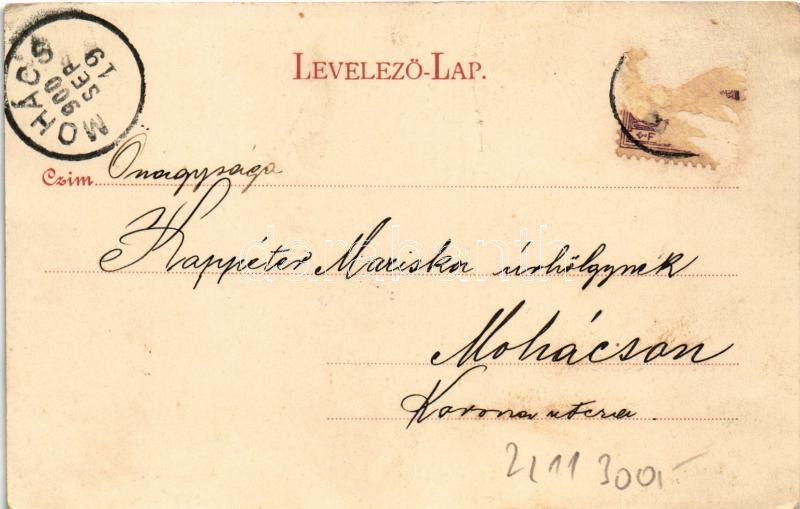 MOHÁCS
900
SEP
19
LEVELEZŐ-LAP.
Czim Önagysága
Kappéter Mariska úrhölgynek
darabanth
Mohácson
Korona utcza
2111 300,-